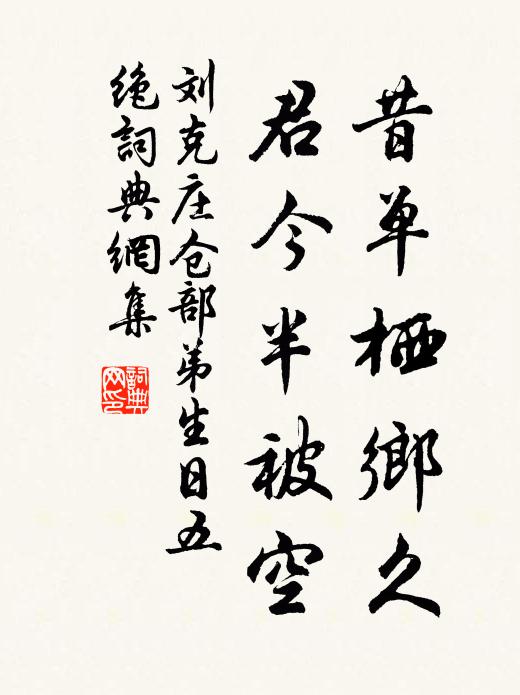 昔单栖乡久
君今半被空
刘克庄仓部弟生日五
绝詞典網集
詞典网印